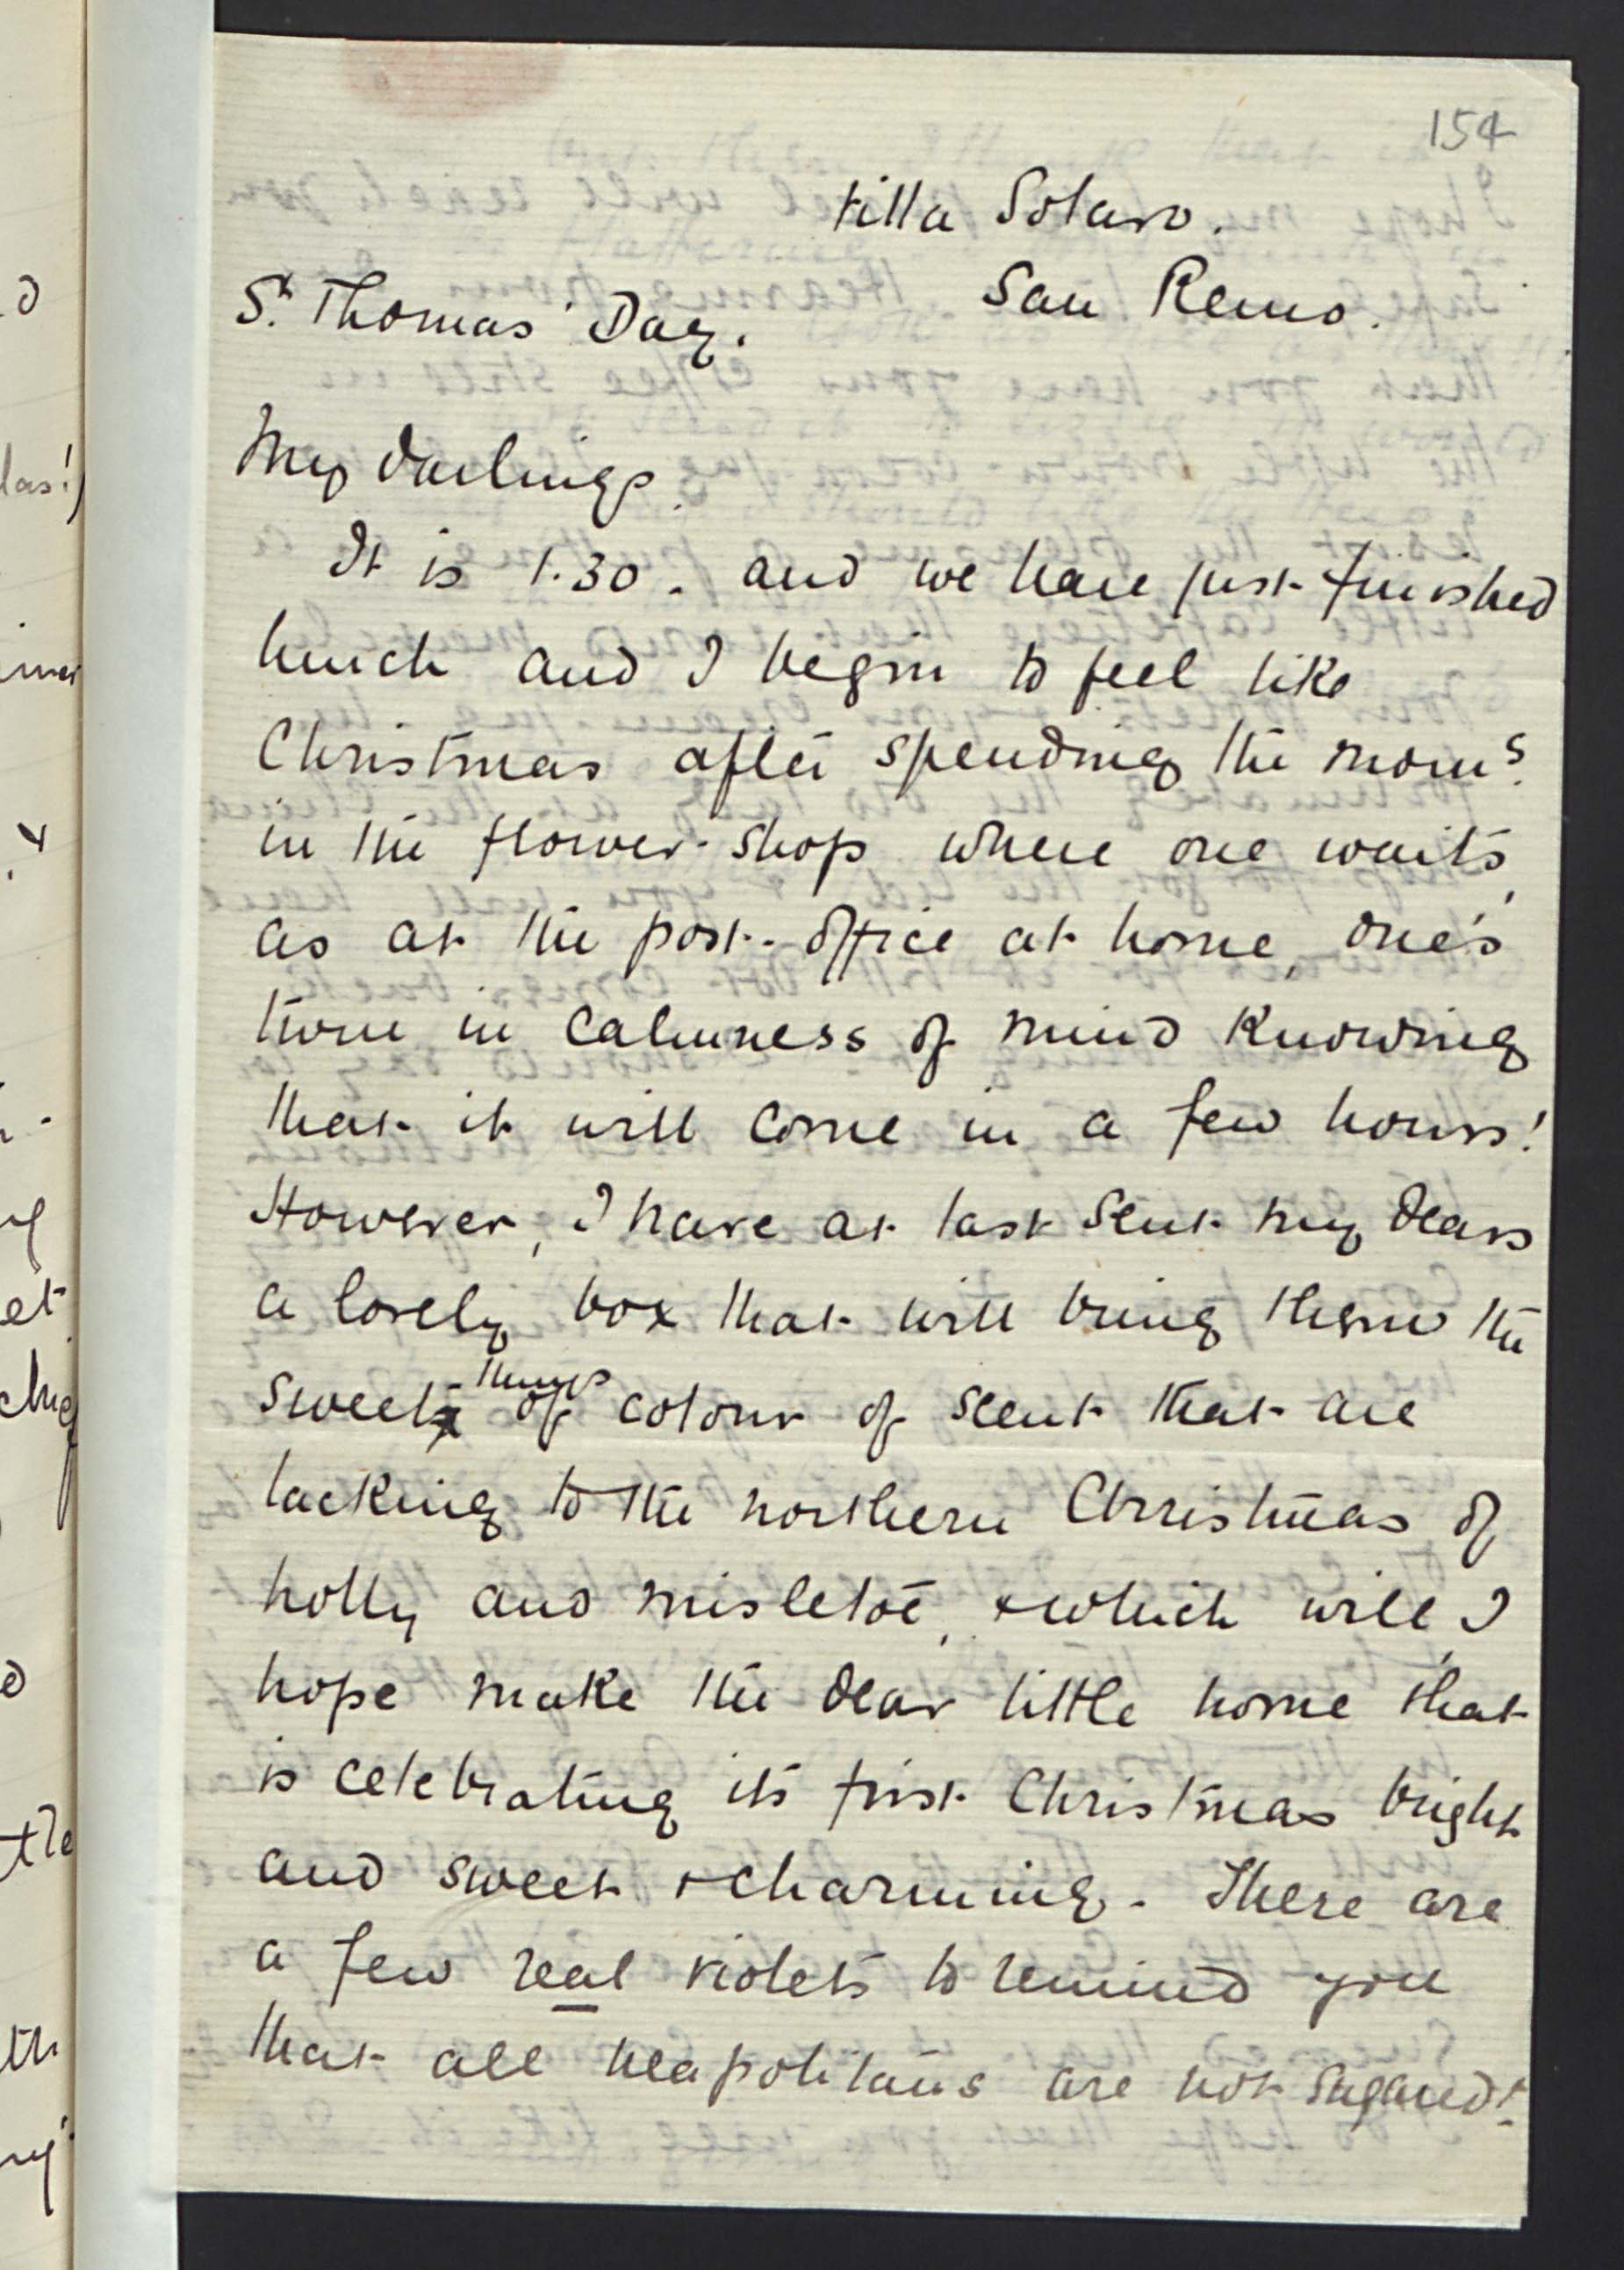 154
Villa Solaro.
San Remo.
St. Thomas' Day.
My darlings,
It is 1.30. and we have just finished
lunch and I begin to feel like
Christmas after spending the morng.
in the flower-shop where one waits,
as at the post-office at home, one's
turn in calmness of mind knowing
that it will come in a few hours!
However, I have at last sent my dears
a lovely box that will bring them the
sweet things of colour of scent that are
lacking to the northern Christmas of
holly and misletoe, + which will, I
hope make the dear little home that
is celebrating its first Christmas bright
and sweet + charming. There are
a few real violets to remind you
that all neapolitans are not sugared!